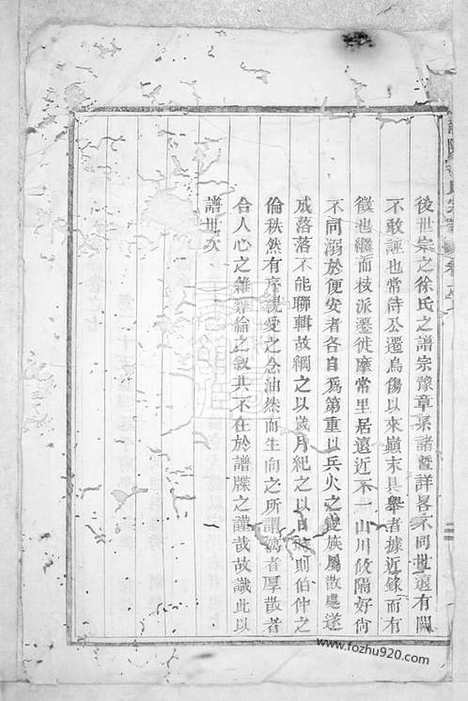 後世宗之徐氏之譜宗豫章來諸暨詳畧不同世遠有闕
不敢誣也常待公遷烏傷以來巔末具舉者據近錄而有
徵也繼而枝派遷徙靡常里居遠近不一山川攸隔好尚
不同溺於便安者各自為第重以兵火之變族屬散處遂
成落落不能聯輯故綱之以歲月紀之以自時則伯仲之
倫秩然有序親愛之念油然而生向之所謂漓者厚散者
合人心之離彝倫之敘其不在於譜牒之講哉故識此以
譜世次
www.fozhu920.com